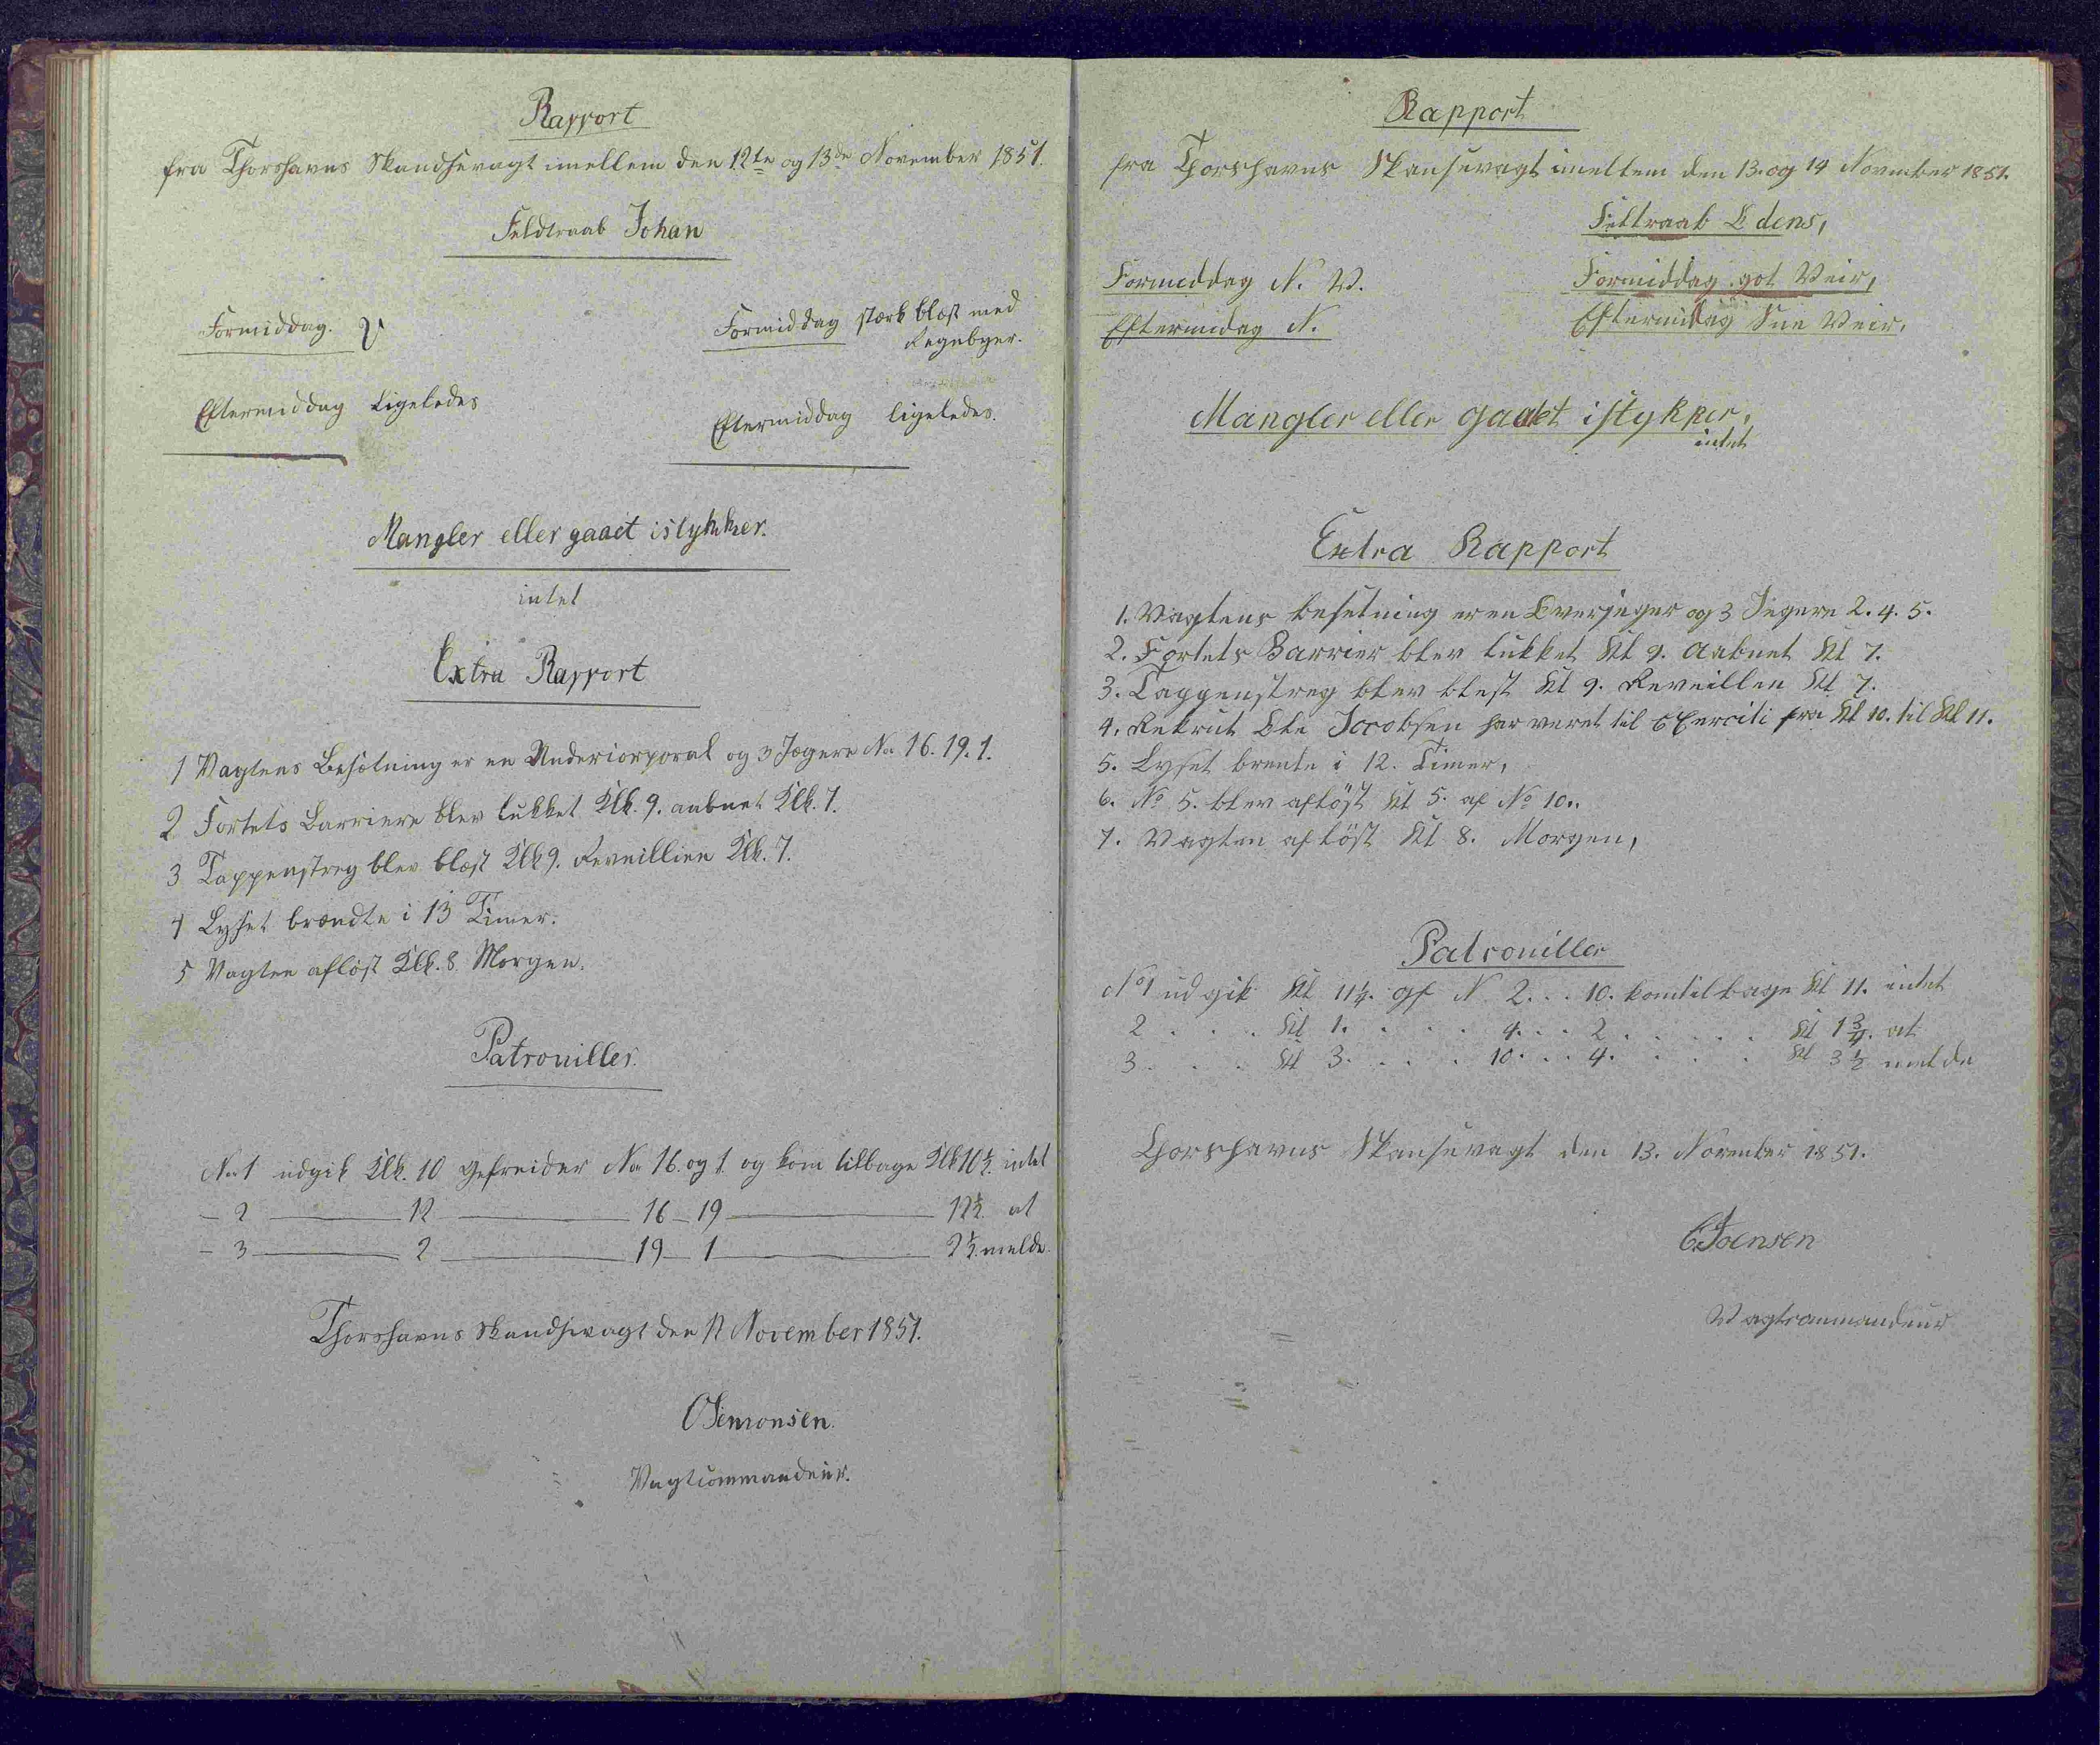 Rapport
fra Thorshavns Skandsevagt imellem den 12te og 13de November 1851.
Feldtraab Johan
Formiddag. V
Formiddag stærk blæst med
Regnbyer.
Eftermiddag Ligeledes
Eftermiddag ligeledes.
Mangler eller gaaet istykker.
intet
Extra Rapport
1 Vagtens Besætning er en Undercorporal og 3 Jægere No 16. 19. 1.
2 Fortets Barriere blev lukket Klk. 9. aabnet Klk. 7.
3 Tappenstreg blev blæst Klk 9. Reveillien Klk. 7.
4 Lyset brændte i 13 Timer.
5 Vagten afløst Klk. 8 Morgen.
Patrouiller.
No 1 udgik Klk. 10 Gefreider No 16. og 1. og kom tilbage Klk 10½. intet
– 2 — 12 — 16 – 19 — 12½. at
– 3 — 2 — 19 – 1 — 2½. melde.
Thorshavns Skandsevagt den 12 November 1851.
OSimonsen.
Vagtcommandeur.
Rapport
fra Thorshavns Skansevagt imellem den 13. og 14 November 1851.
Feltraab Edens,
Formeddag N. V.
Formiddag got Veir,
Eftermidag N.
Eftermiddag Sne Veir,
Mangler eller gaaket istykker,
intet
Extra Rapport
1. Vagtens besetning er en Overjeger og 3 Jegere 2. 4. 5.
2. Fortets Barrier blev lukket Kl 9. Aabnet Kl 7.
3. Tappenstreg blev blest Kl 9. Reveillen Kl 7.
4. Rekrut Ole Jacobsen har veret til Exerciti fra Kl 10. til Kl 11.
5. Lyset brente i 12. Timer,
6. No 5. blev aflöst Kl 5. af No 10.
7. Vagten aflöst Kl 8. Morgen,
Patrouiller
No 1 udgik Kl 11¼. gf N 2. . . 10. kom tilbage Kl 11. intet
2 . . . Kl 1. . . . . 4. . . 2 . . . . . Kl 1¾. at
3 . . . Kl 3. . . . 10. . . 4. . . . Kl 3½ melde
Thorshavns Skansevagt den 13. November 1851.
Joensen
Vagtcommandeur